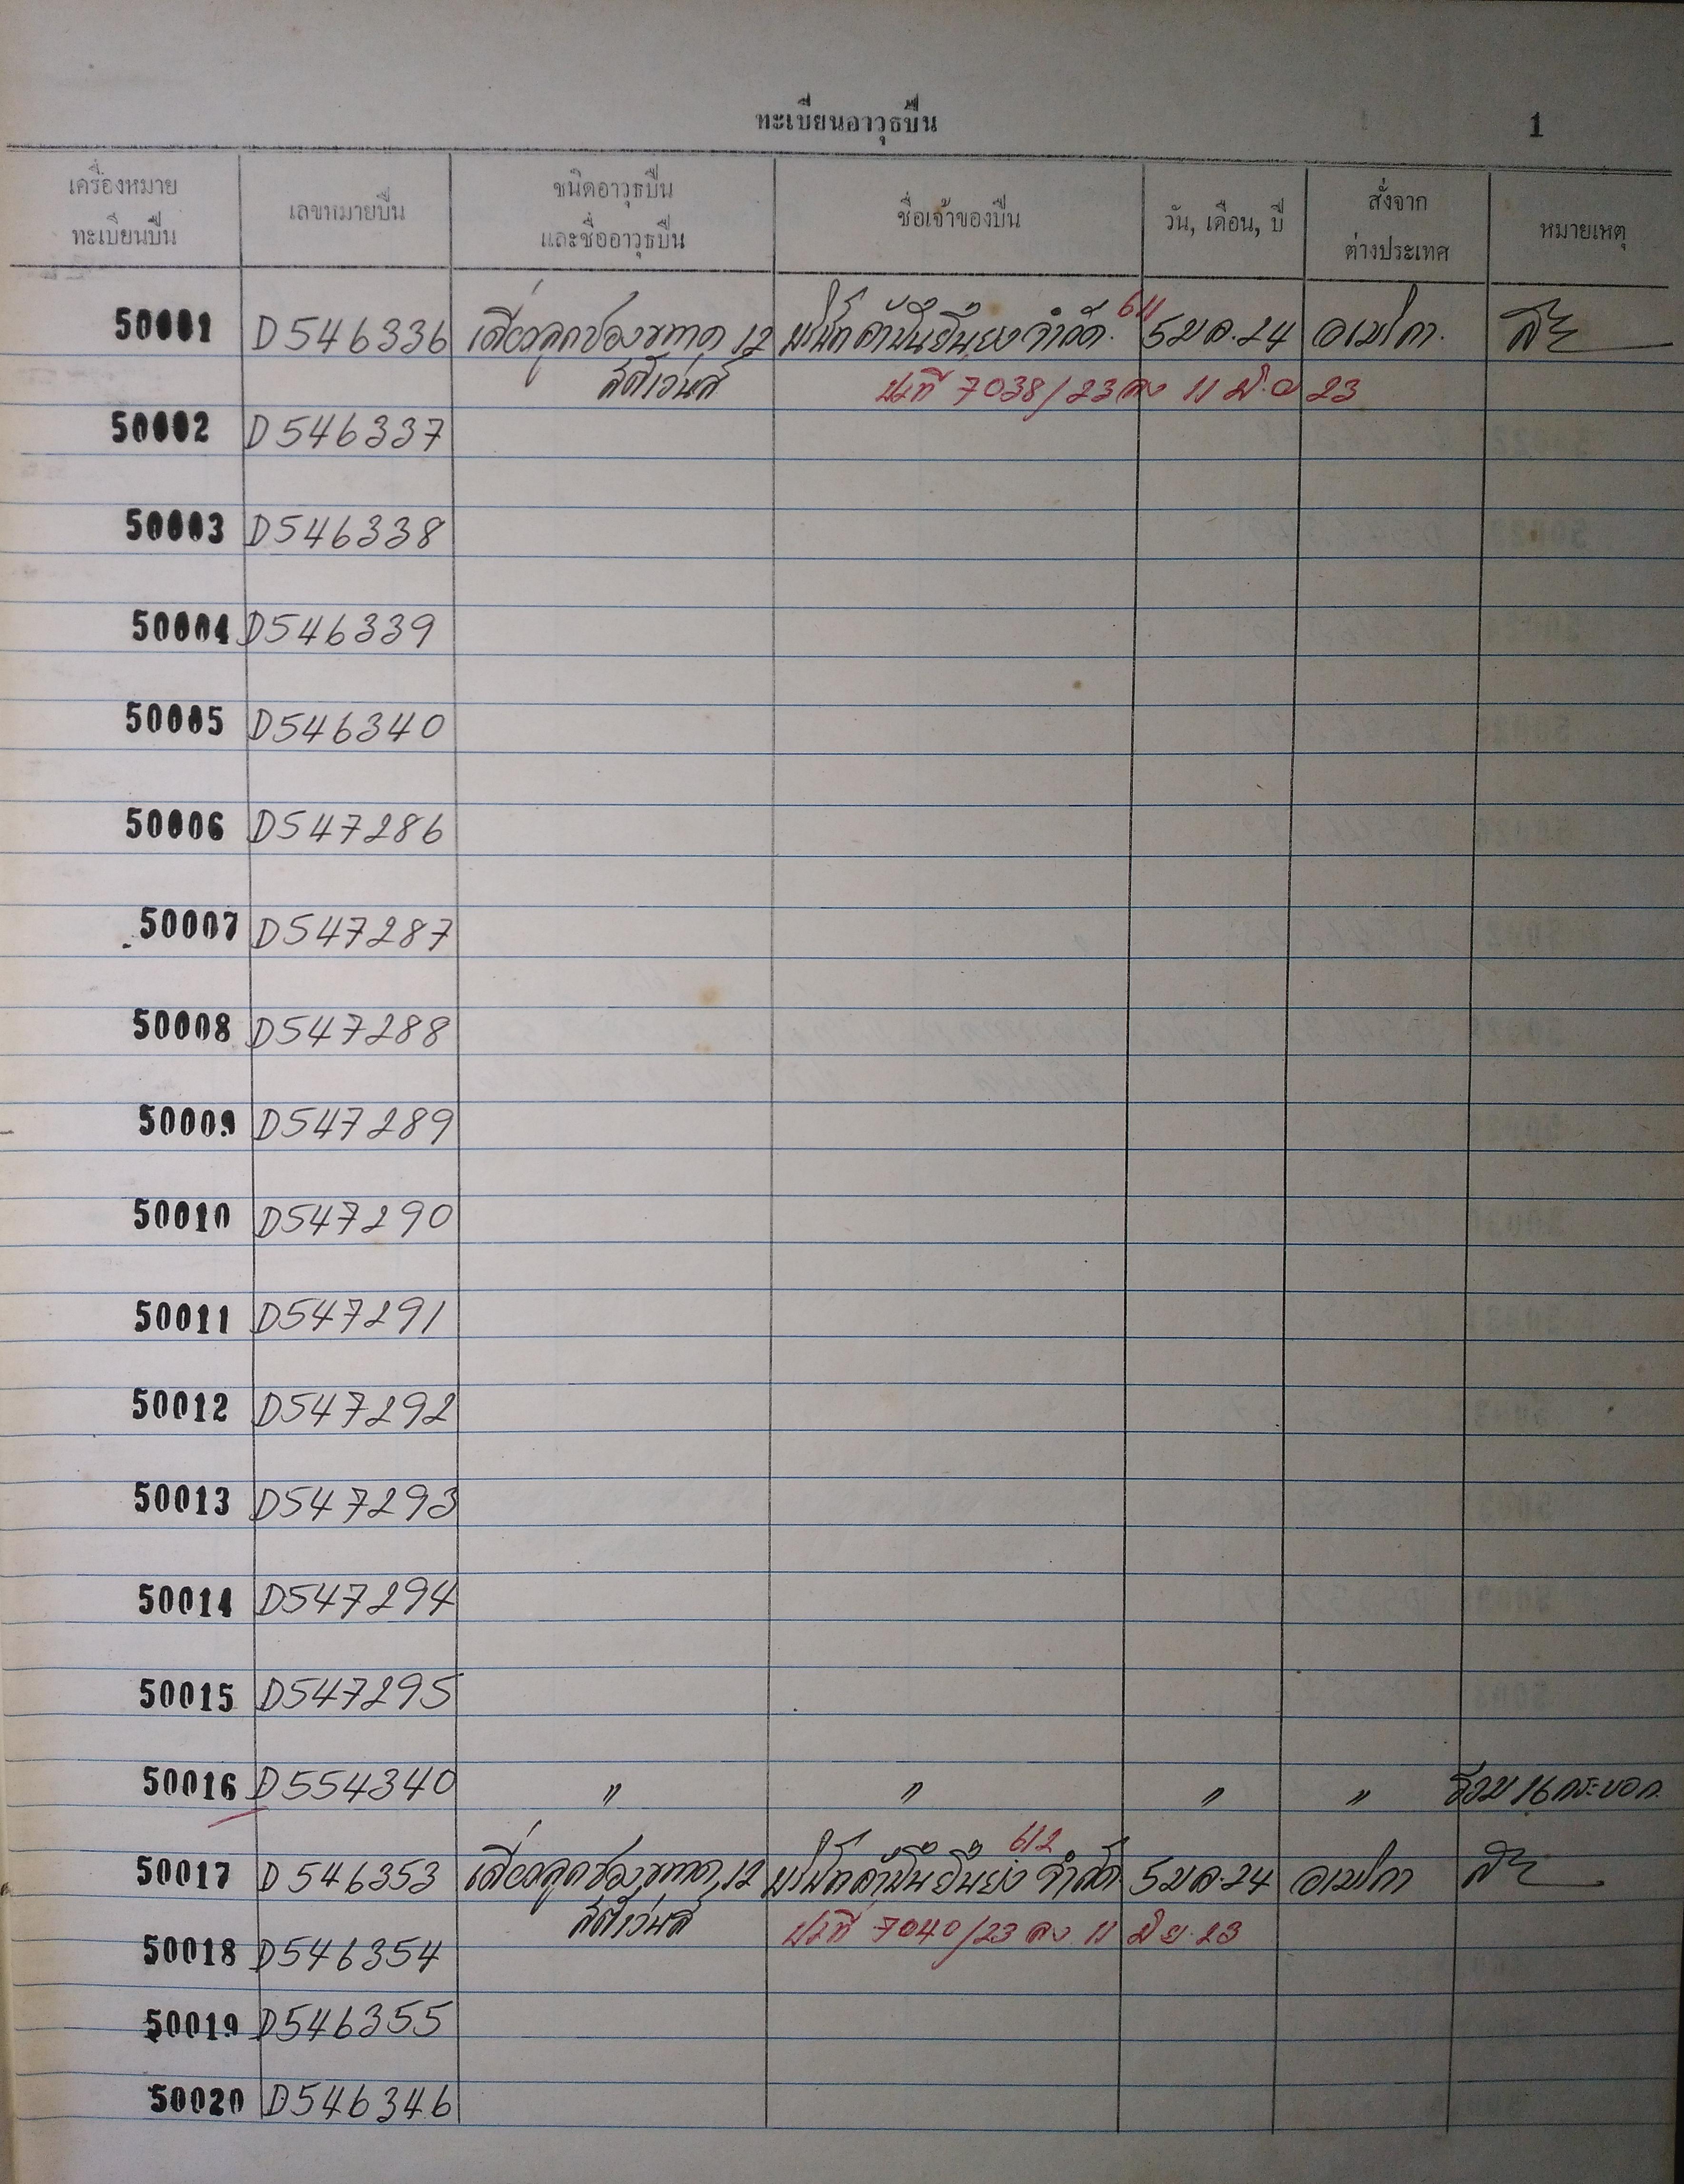 ทะเบียนอาวุธปืน 1
เครื่องหมาย ทะเบียนปืน เลขหมายปืน ชนิดอาวุธปืน และชื่ออาวุธปืน ชื่อเจ้าของปืน วัน, เดือน, ปี สั่งจาก ต่างประเทศ หมายเหตุ
611
50001 D546336 เดี่ยวลูกซองขนาด 12 จำกัด. 5 ม.ค.24 อเมริกา.
ที่ 7038/23 ลง 11 มิ.ย 23
50002 D546337
50003 D546338
50004 D546339
50005 D546340
50006 D547286
50007 D547287
50008 D547288
50009 D547289
50010 D547290
50011 D547291
50012 D547292
50013 D547293
50014 D547294
50015 D547295
50016 D554340 〃 〃 〃 〃 รวม 16 กระบอก.
612
50017 D546353 เดี่ยวลูกซองขนาด 12 จำกัด 5 ม.ค.24 อเมริกา
ที่ 7040/23 ลง 11 มิ.ย. 23
50018 D546354
50019 D546355
50020 D546346